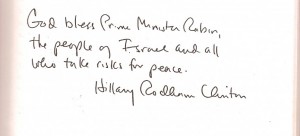 God bless Prime Minister Rabin,
the people of Israel and all
who take risks for peace.
Hillary Rodham Clinton